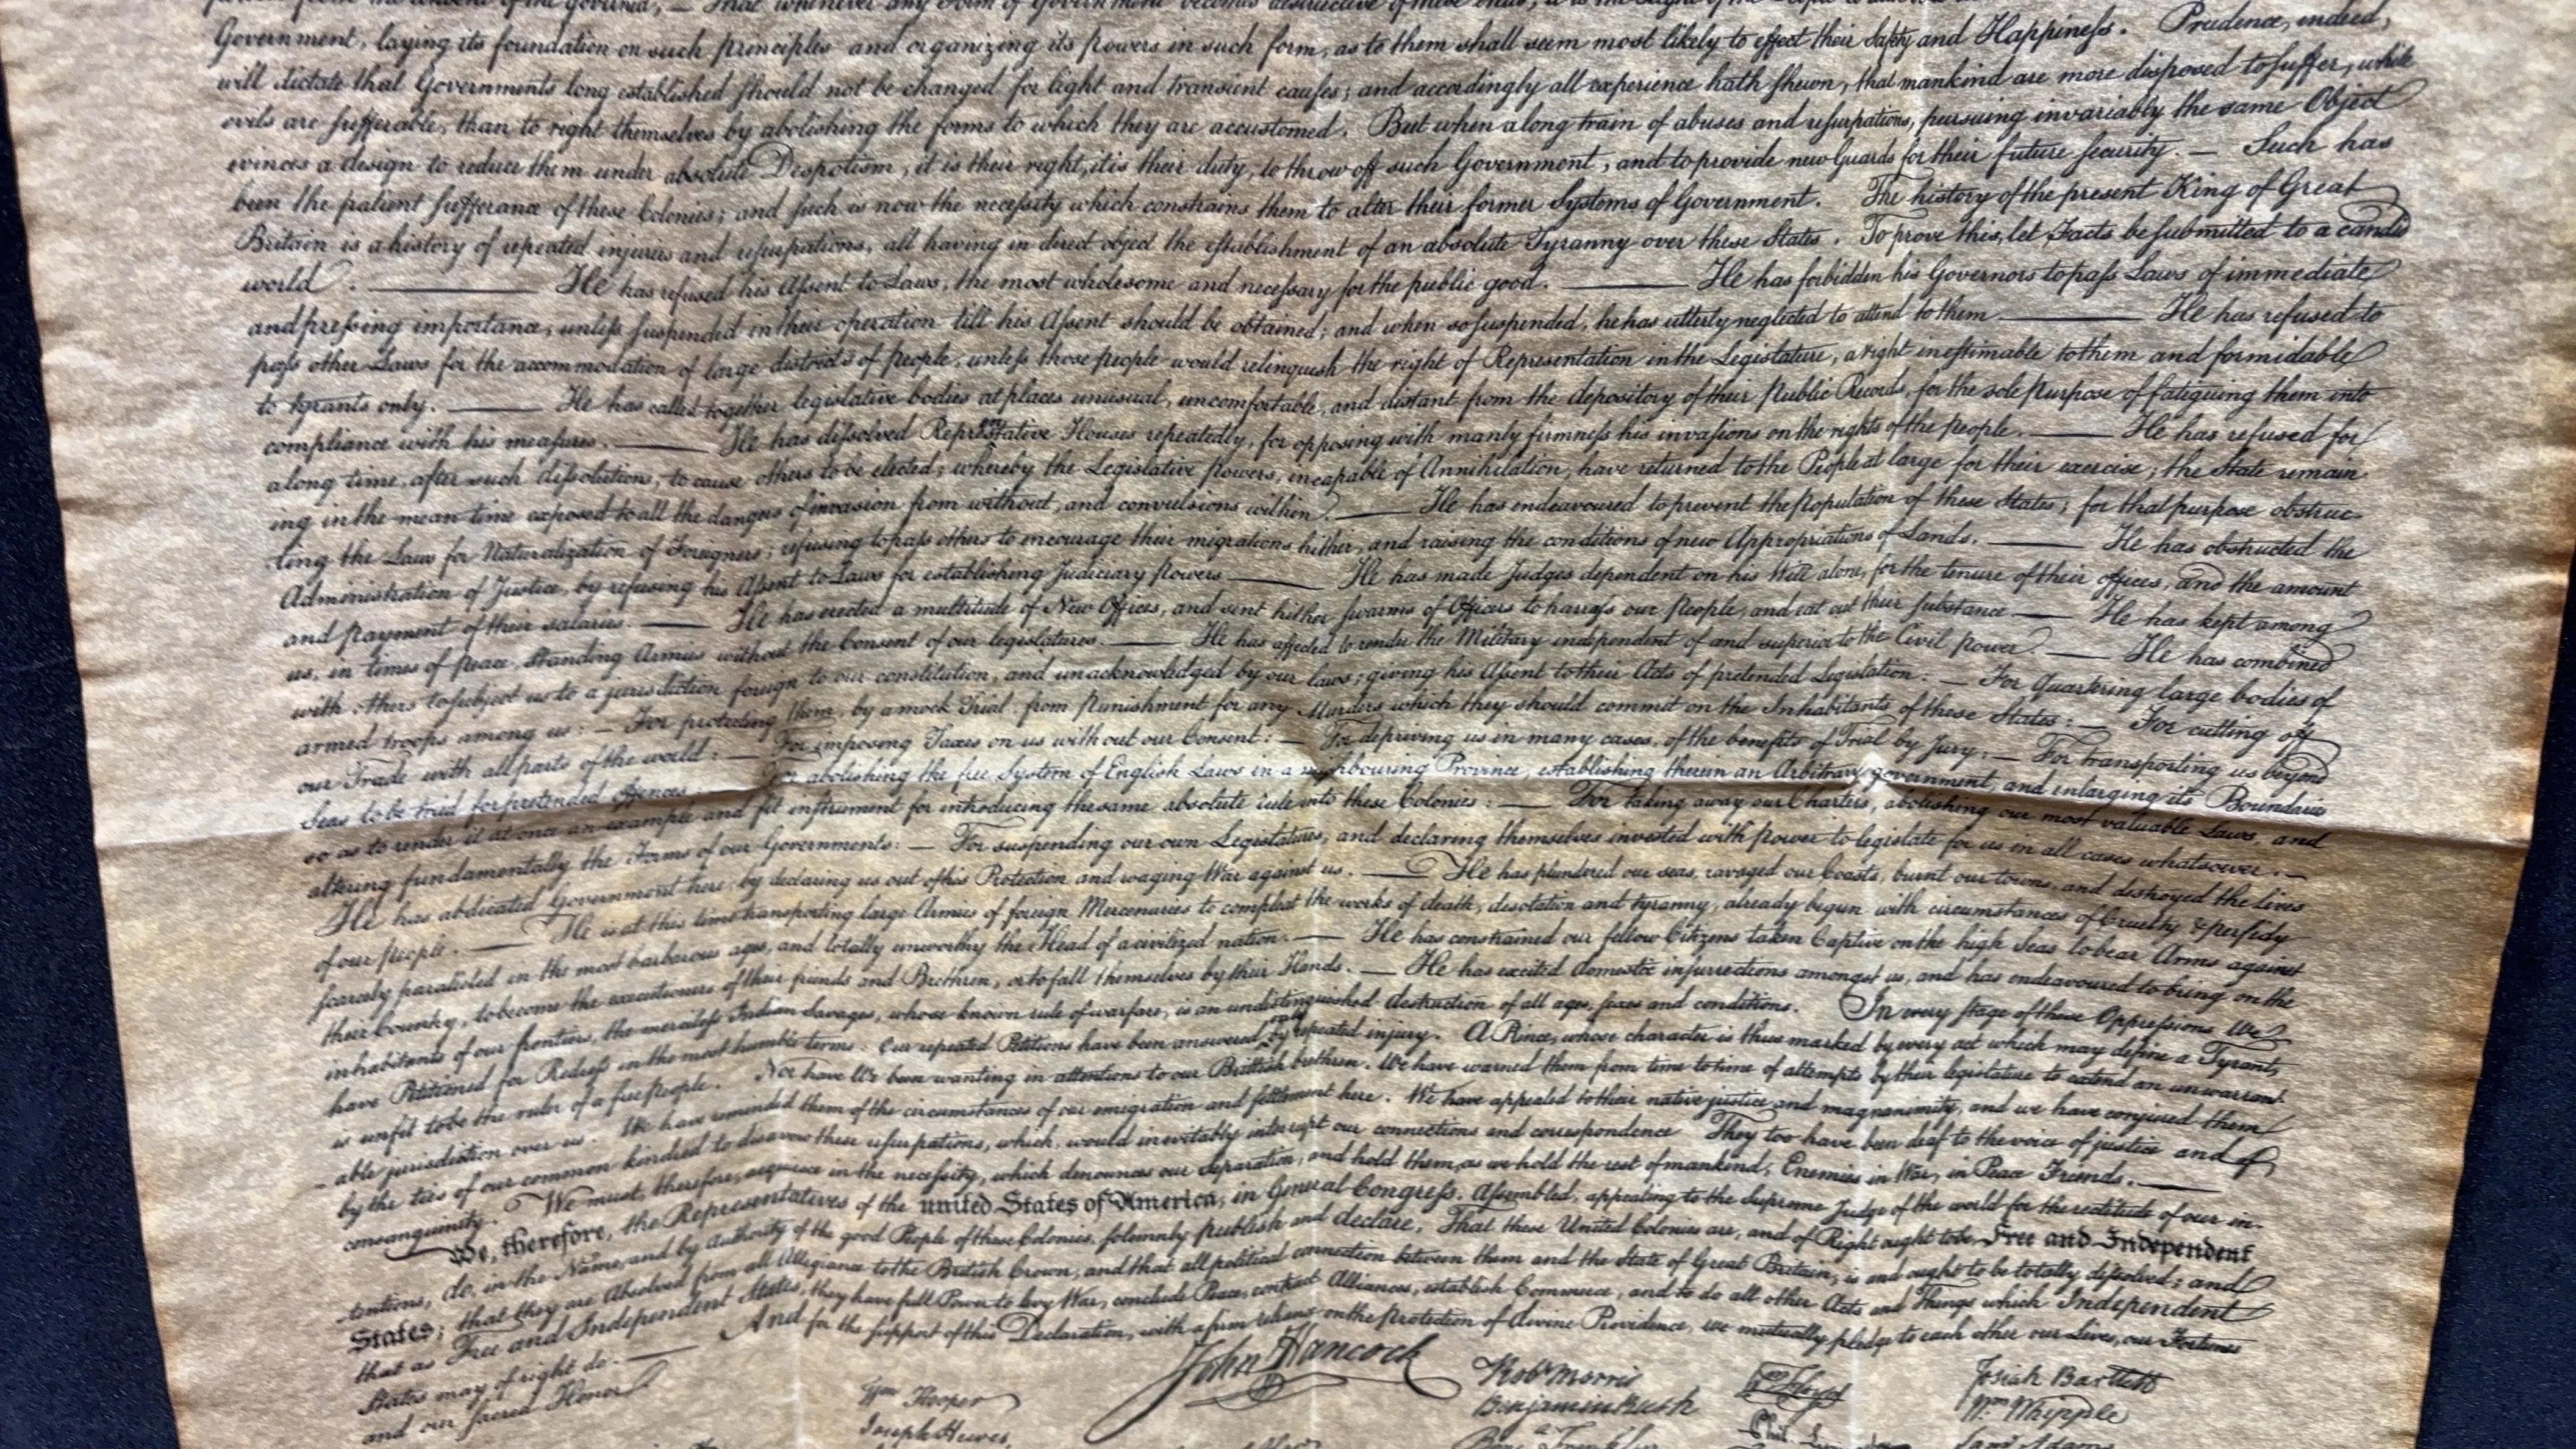 from the consent of the governed, — That whenever any Form of Government becomes destructive of these ends, it is the Right of the People to
Government, laying its foundation on such principles and organizing its powers in such form, as to them shall seem most likely to effect their Safety and Happiness. Prudence, indeed,
will dictate that Governments long established should not be changed for light and transient causes; and accordingly all experience hath shewn, that mankind are more disposed to suffer, while
evils are sufferable, than to right themselves by abolishing the forms to which they are accustomed. But when a long train of abuses and usurpations, pursuing invariably the same Object
evinces a design to reduce them under absolute Despotism, it is their right, it is their duty, to throw off such Government, and to provide new Guards for their future security. — Such has
been the patient sufferance of these Colonies; and such is now the necessity which constrains them to alter their former Systems of Government. The history of the present King of Great
Britain is a history of repeated injuries and usurpations, all having in direct object the establishment of an absolute Tyranny over these States. To prove this, let Facts be submitted to a candid
world. — He has refused his Assent to Laws, the most wholesome and necessary for the public good. — He has forbidden his Governors to pass Laws of immediate
and pressing importance, unless suspended in their operation till his Assent should be obtained; and when so suspended, he has utterly neglected to attend to them. — He has refused to
pass other Laws for the accommodation of large districts of people, unless those people would relinquish the right of Representation in the Legislature, a right inestimable to them and formidable
to tyrants only. — He has called together legislative bodies at places unusual, uncomfortable, and distant from the depository of their Public Records, for the sole purpose of fatiguing them into
compliance with his measures. — He has dissolved Representative Houses repeatedly, for opposing with manly firmness his invasions on the rights of the people. — He has refused for
a long time, after such dissolutions, to cause others to be elected; whereby the Legislative powers, incapable of Annihilation, have returned to the People at large for their exercise; the State remain-
ing in the mean time exposed to all the dangers of invasion from without, and convulsions within. — He has endeavoured to prevent the population of these States; for that purpose obstruc-
ting the Laws for Naturalization of Foreigners; refusing to pass others to encourage their migrations hither, and raising the conditions of new Appropriations of Lands. — He has obstructed the
Administration of Justice, by refusing his Assent to Laws for establishing Judiciary powers. — He has made Judges dependent on his Will alone, for the tenure of their offices, and the amount
and payment of their salaries. — He has erected a multitude of New Offices, and sent hither swarms of Officers to harrass our people, and eat out their substance. — He has kept among
us, in times of peace, Standing Armies without the Consent of our legislatures. — He has affected to render the Military independent of and superior to the Civil power. — He has combined
with others to subject us to a jurisdiction foreign to our constitution, and unacknowledged by our laws; giving his Assent to their Acts of pretended Legislation: — For Quartering large bodies of
armed troops among us: — For protecting them, by a mock Trial, from punishment for any Murders which they should commit on the Inhabitants of these States: — For cutting off
our Trade with all parts of the world: — For imposing Taxes on us without our Consent: — For depriving us in many cases, of the benefits of Trial by Jury: — For transporting us beyond
Seas to be tried for pretended offences. — For abolishing the free System of English Laws in a neighbouring Province, establishing therein an Arbitrary government, and enlarging its Boundaries
so as to render it at once an example and fit instrument for introducing the same absolute rule into these Colonies: — For taking away our Charters, abolishing our most valuable Laws, and
altering fundamentally the Forms of our Governments: — For suspending our own Legislatures, and declaring themselves invested with power to legislate for us in all cases whatsoever. —
He has abdicated Government here, by declaring us out of his Protection and waging War against us. — He has plundered our seas, ravaged our Coasts, burnt our towns, and destroyed the lives
of our people. — He is at this time transporting large Armies of foreign Mercenaries to compleat the works of death, desolation and tyranny, already begun with circumstances of Cruelty & perfidy
scarcely paralleled in the most barbarous ages, and totally unworthy the Head of a civilized nation. — He has constrained our fellow Citizens taken Captive on the high Seas to bear Arms against
their Country, to become the executioners of their friends and Brethren, or to fall themselves by their Hands. — He has excited domestic insurrections amongst us, and has endeavoured to bring on the
inhabitants of our frontiers, the merciless Indian Savages, whose known rule of warfare, is an undistinguished destruction of all ages, sexes and conditions. In every stage of these Oppressions We
have Petitioned for Redress in the most humble terms: Our repeated Petitions have been answered only by repeated injury. A Prince, whose character is thus marked by every act which may define a Tyrant,
is unfit to be the ruler of a free people. Nor have We been wanting in attentions to our Brittish brethren. We have warned them from time to time of attempts by their legislature to extend an unwarrant-
able jurisdiction over us. We have reminded them of the circumstances of our emigration and settlement here. We have appealed to their native justice and magnanimity, and we have conjured them
by the ties of our common kindred to disavow these usurpations, which, would inevitably interrupt our connections and correspondence. They too have been deaf to the voice of justice and of
consanguinity. We must, therefore, acquiesce in the necessity, which denounces our Separation, and hold them, as we hold the rest of mankind, Enemies in War, in Peace Friends. —
We, therefore, the Representatives of the united States of America, in General Congress, Assembled, appealing to the Supreme Judge of the world for the rectitude of our in-
tentions, do, in the Name, and by Authority of the good People of these Colonies, solemnly publish and declare, That these United Colonies are, and of Right ought to be Free and Independent
States; that they are Absolved from all Allegiance to the British Crown, and that all political connection between them and the State of Great Britain, is and ought to be totally dissolved; and
that as Free and Independent States, they have full Power to levy War, conclude Peace, contract Alliances, establish Commerce, and to do all other Acts and Things which Independent
States may of right do. — And for the support of this Declaration, with a firm reliance on the protection of divine Providence, we mutually pledge to each other our Lives, our Fortunes
and our sacred Honor
John Hancock
Wm Hooper
Joseph Hewes,
Robt Morris
Benjamin Rush
Benj. Franklin
Wm Floyd
Josiah Bartlett
Wm Whipple
Saml Adams